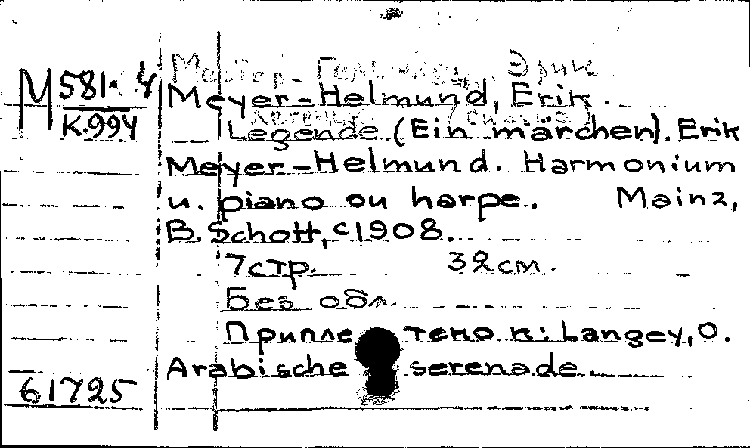 М 581. 4
К.994
Мейер-Гельмунд, Эрик
Meyer-Helmund, Erik.
Legende (Ein märchen). Erik
Meyer-Helmund. Harmonium
u. piano ou harpe. Mainz,
B. Schott, c1908.
7стр. 32см.
Без обл.
Приплетено к: Langey, O.
Arabische serenade.
61725